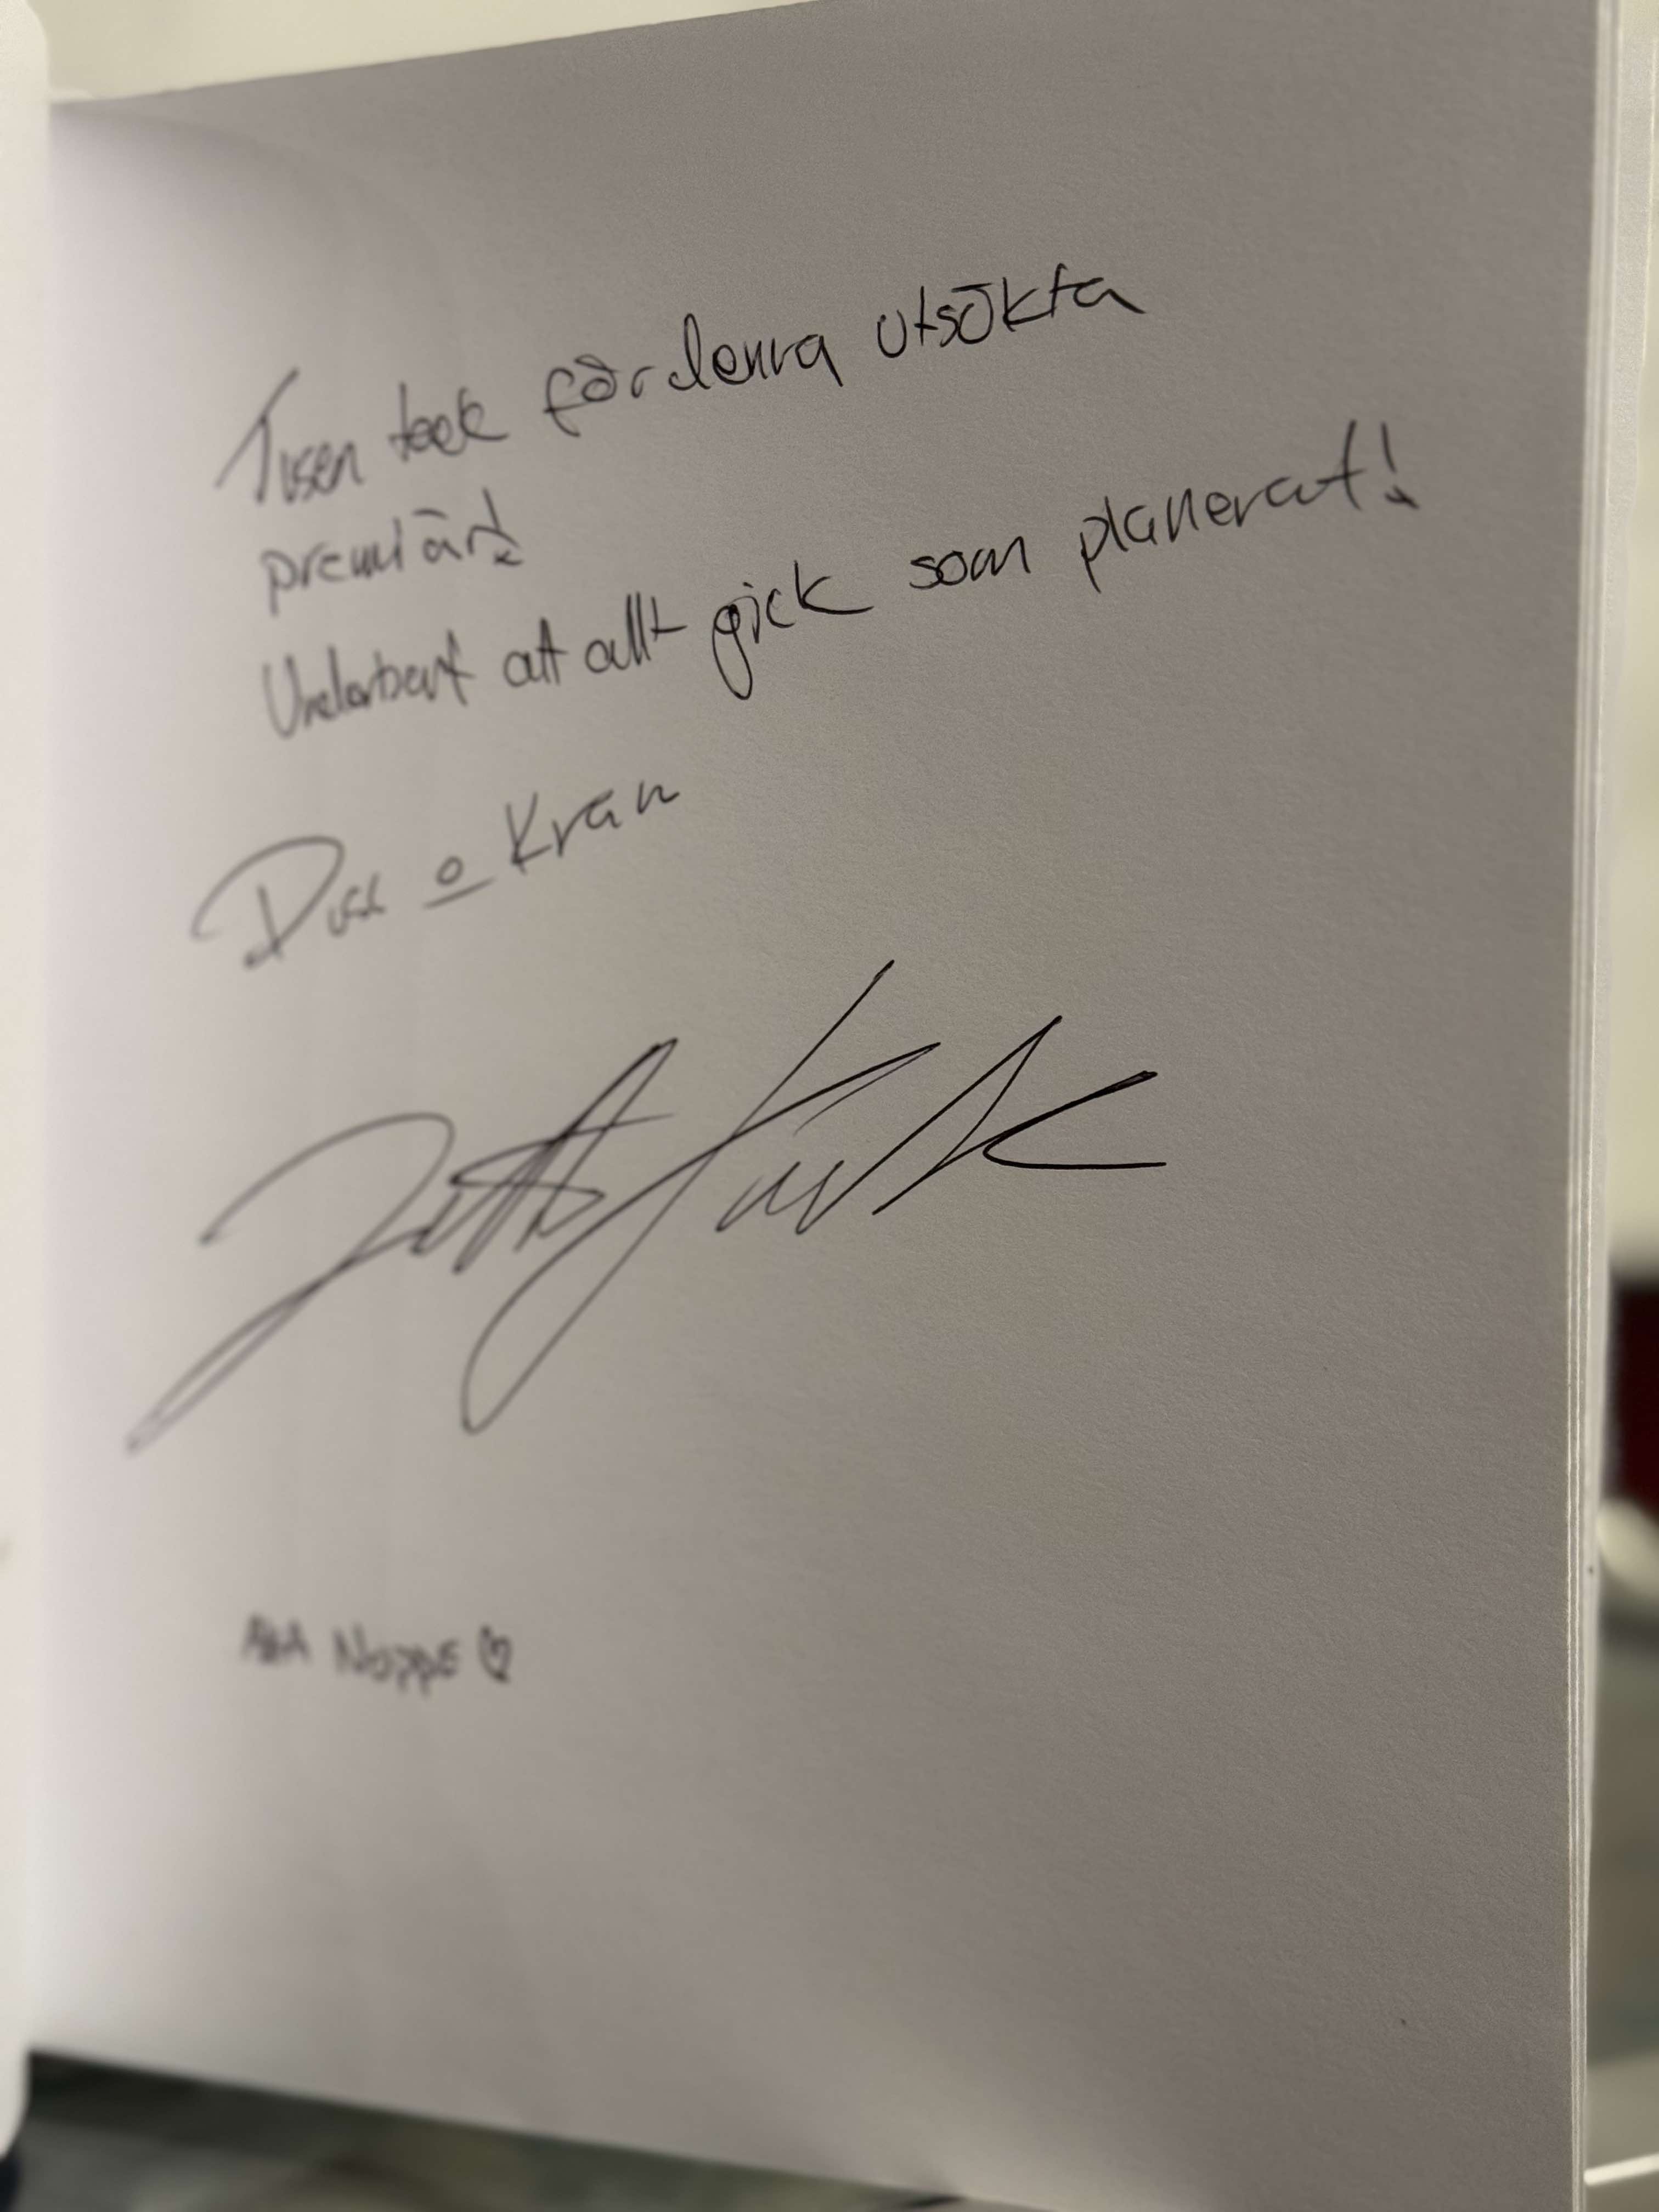 Tusen tack för denna utsökta
premiär!
Underbart att allt gick som planerat!
Puss o Kram
AKA NOPPE ♡